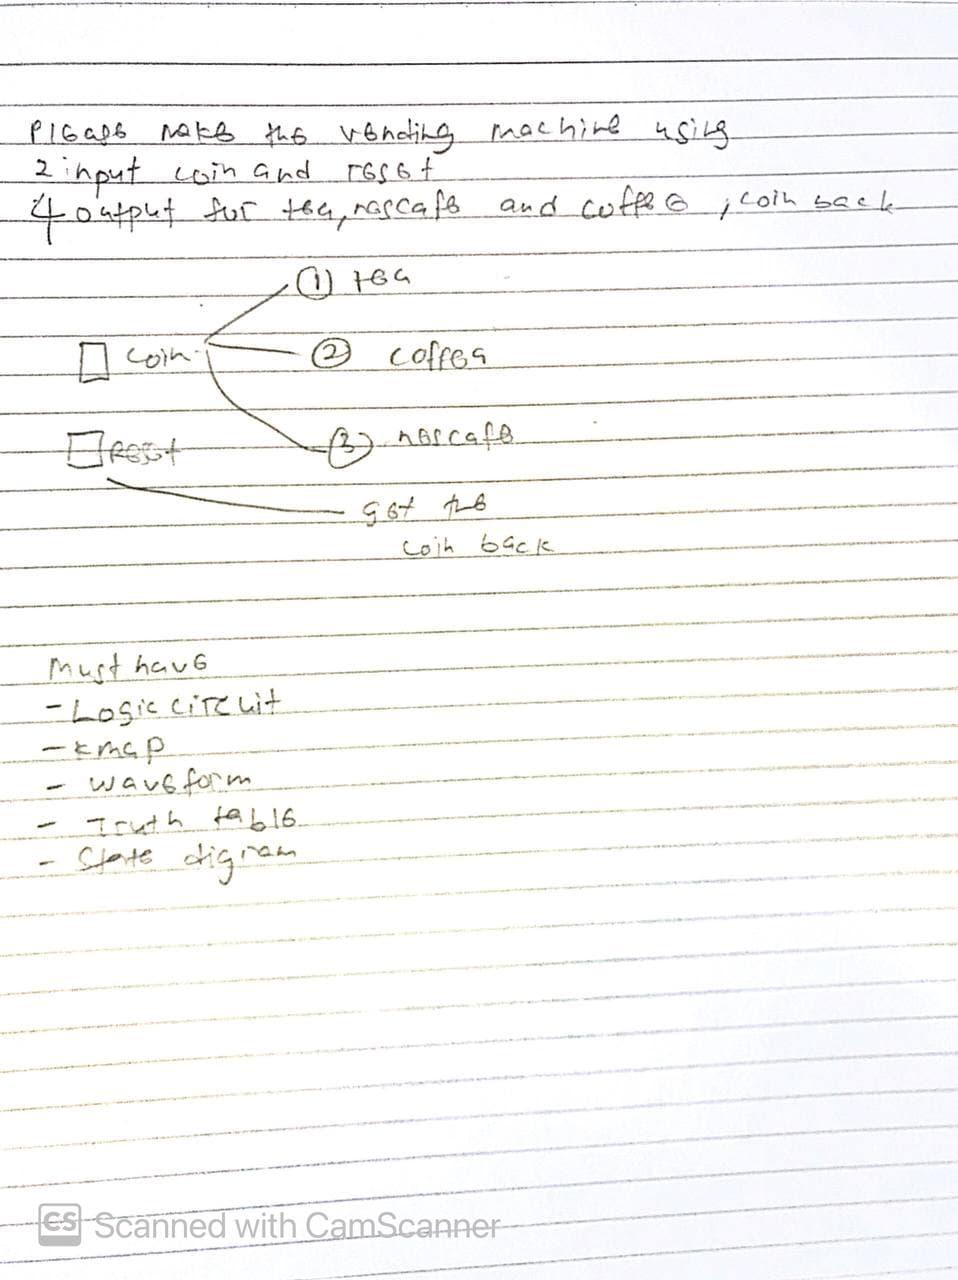 Please make the vending machine using
2 input coin and reset
4 output for tea, nascafe and coffee, coin back
① tea
coin
② coffea
③ nescafe
Reset
get the
coin back
Must have
- Logic circuit
- kmap
- waveform
- Truth table
- State digram
CS Scanned with CamScanner